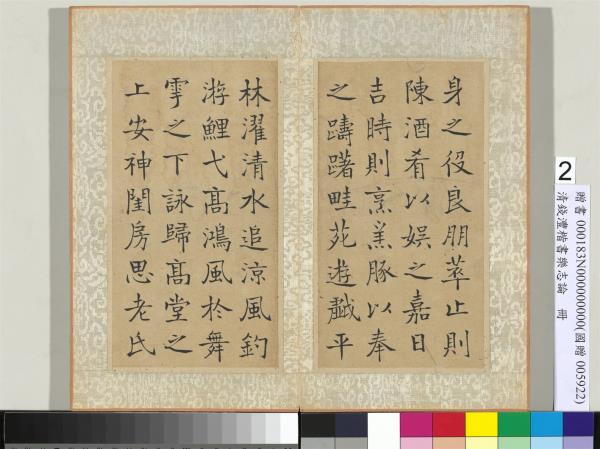 身之役良朋萃止則
陳酒肴以娛之嘉日
吉時則烹羔豚以奉
之躊躇畦苑遊戲平
林濯清水追涼風釣
游鯉弋髙鴻風於舞
雩之下詠歸髙堂之
上安神閨房思老氏
2
贈書 000183N000000000(國贈 005922)
清錢灃楷書樂志論 冊